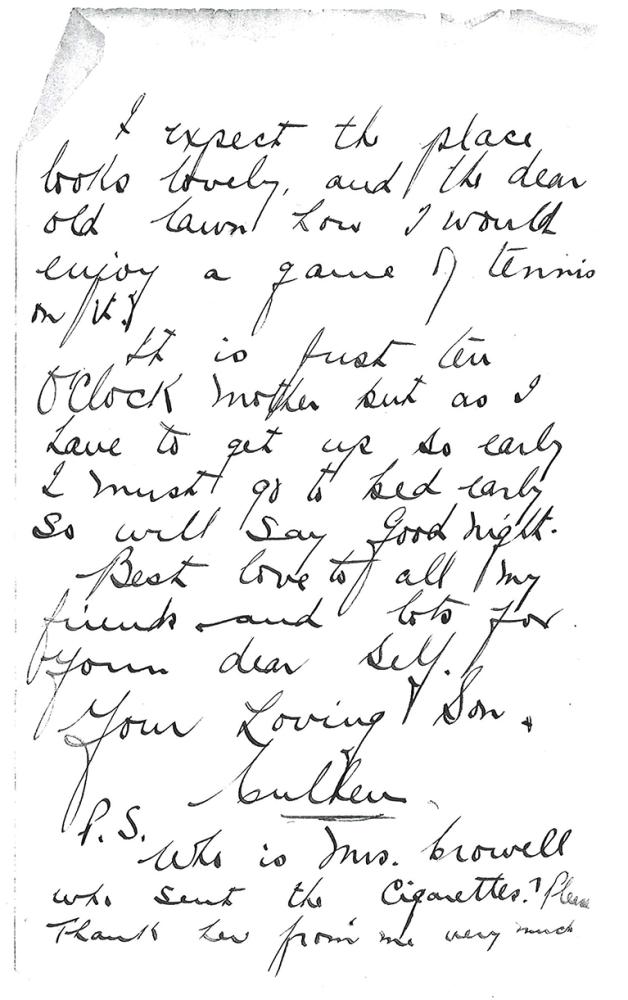 I expect the place
looks lovely, and the dear
old lawn how I would
enjoy a game of tennis
on it!
It is just ten
O'Clock Mother but as I
have to get up so early
I must go to bed early
so will say Good night.
Best love to all my
friends and lots for
your dear self.
Your Loving Son.
P.S.
Who is Mrs. Crowell
who sent the Cigarettes? Please
Thank her from me very much